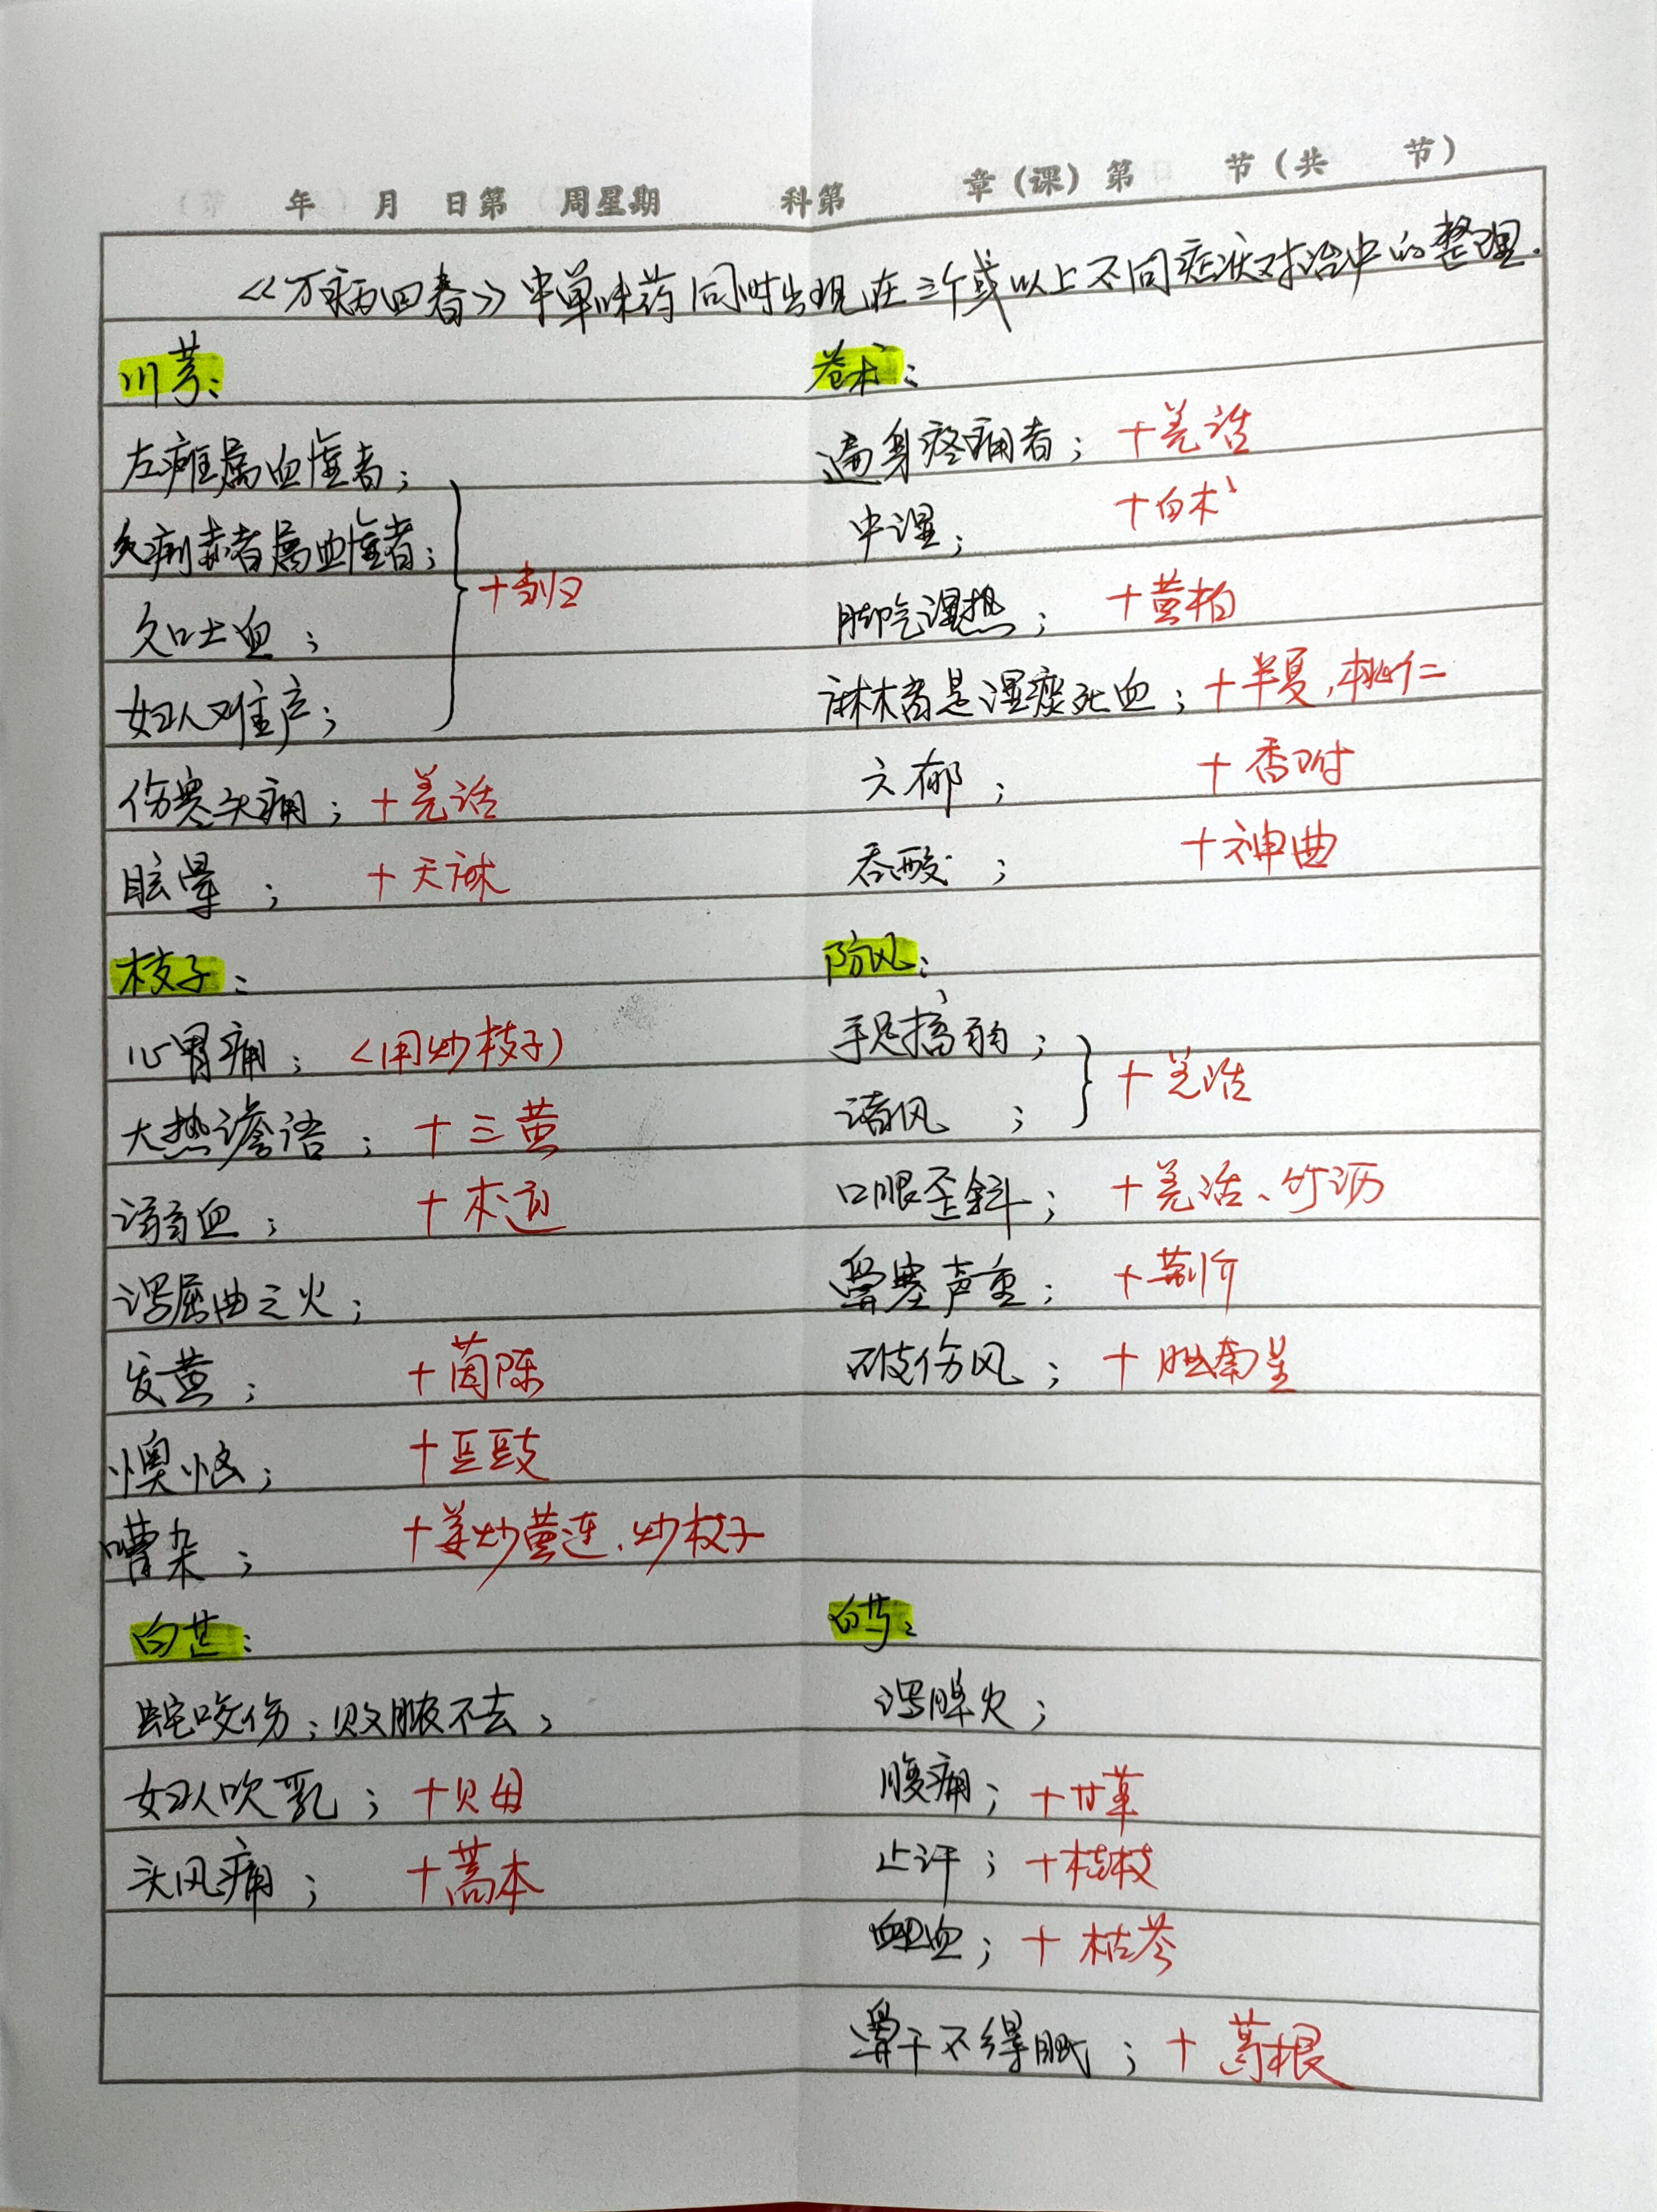 年 月 日第 周星期 科第 章(课)第 节(共 节)
《万病回春》中单味药同时出现在三个或以上不同症状对治中的整理.
川芎:
左瘫属血虚者;
久痢赤者属血虚者;
欠口土血;
妇人难产;
+当归
伤寒头痛; +羌活
眩晕; +天麻
枝子:
心胃痛; <用炒枝子)
大热谵语; +三黄
溺血; +木通
泻屈曲之火;
发黄; +茵陈
懊恼; +豆豉
嘈杂; +姜炒黄连、炒枝子
白芷:
蛇咬伤; 败脓不去;
妇人吹乳; +贝母
头风痛; +蒿本
苍术:
遍身疼痛者; +羌活
中湿; +白术
脚气湿热; +黄柏
麻木者是湿痰死血; +半夏,桃仁
六郁; +香附
吞酸; +神曲
防风:
手足搐弱;
诸风;
+羌活
口眼歪斜; +羌活、竹沥
鼻塞声重; +荆介
破伤风; +胆南星
白芍:
泻脾火;
腹痛; +甘草
止汗; +桂枝
衄血; +枯芩
鼻干不得眠; +葛根